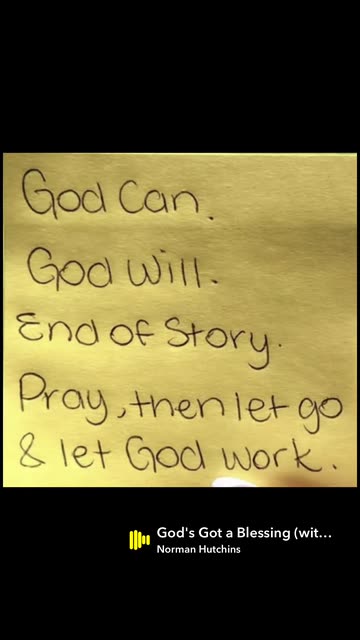 God Can.
God Will.
End of Story.
Pray, then let go
& let God work.
God's Got a Blessing (wit...
Norman Hutchins